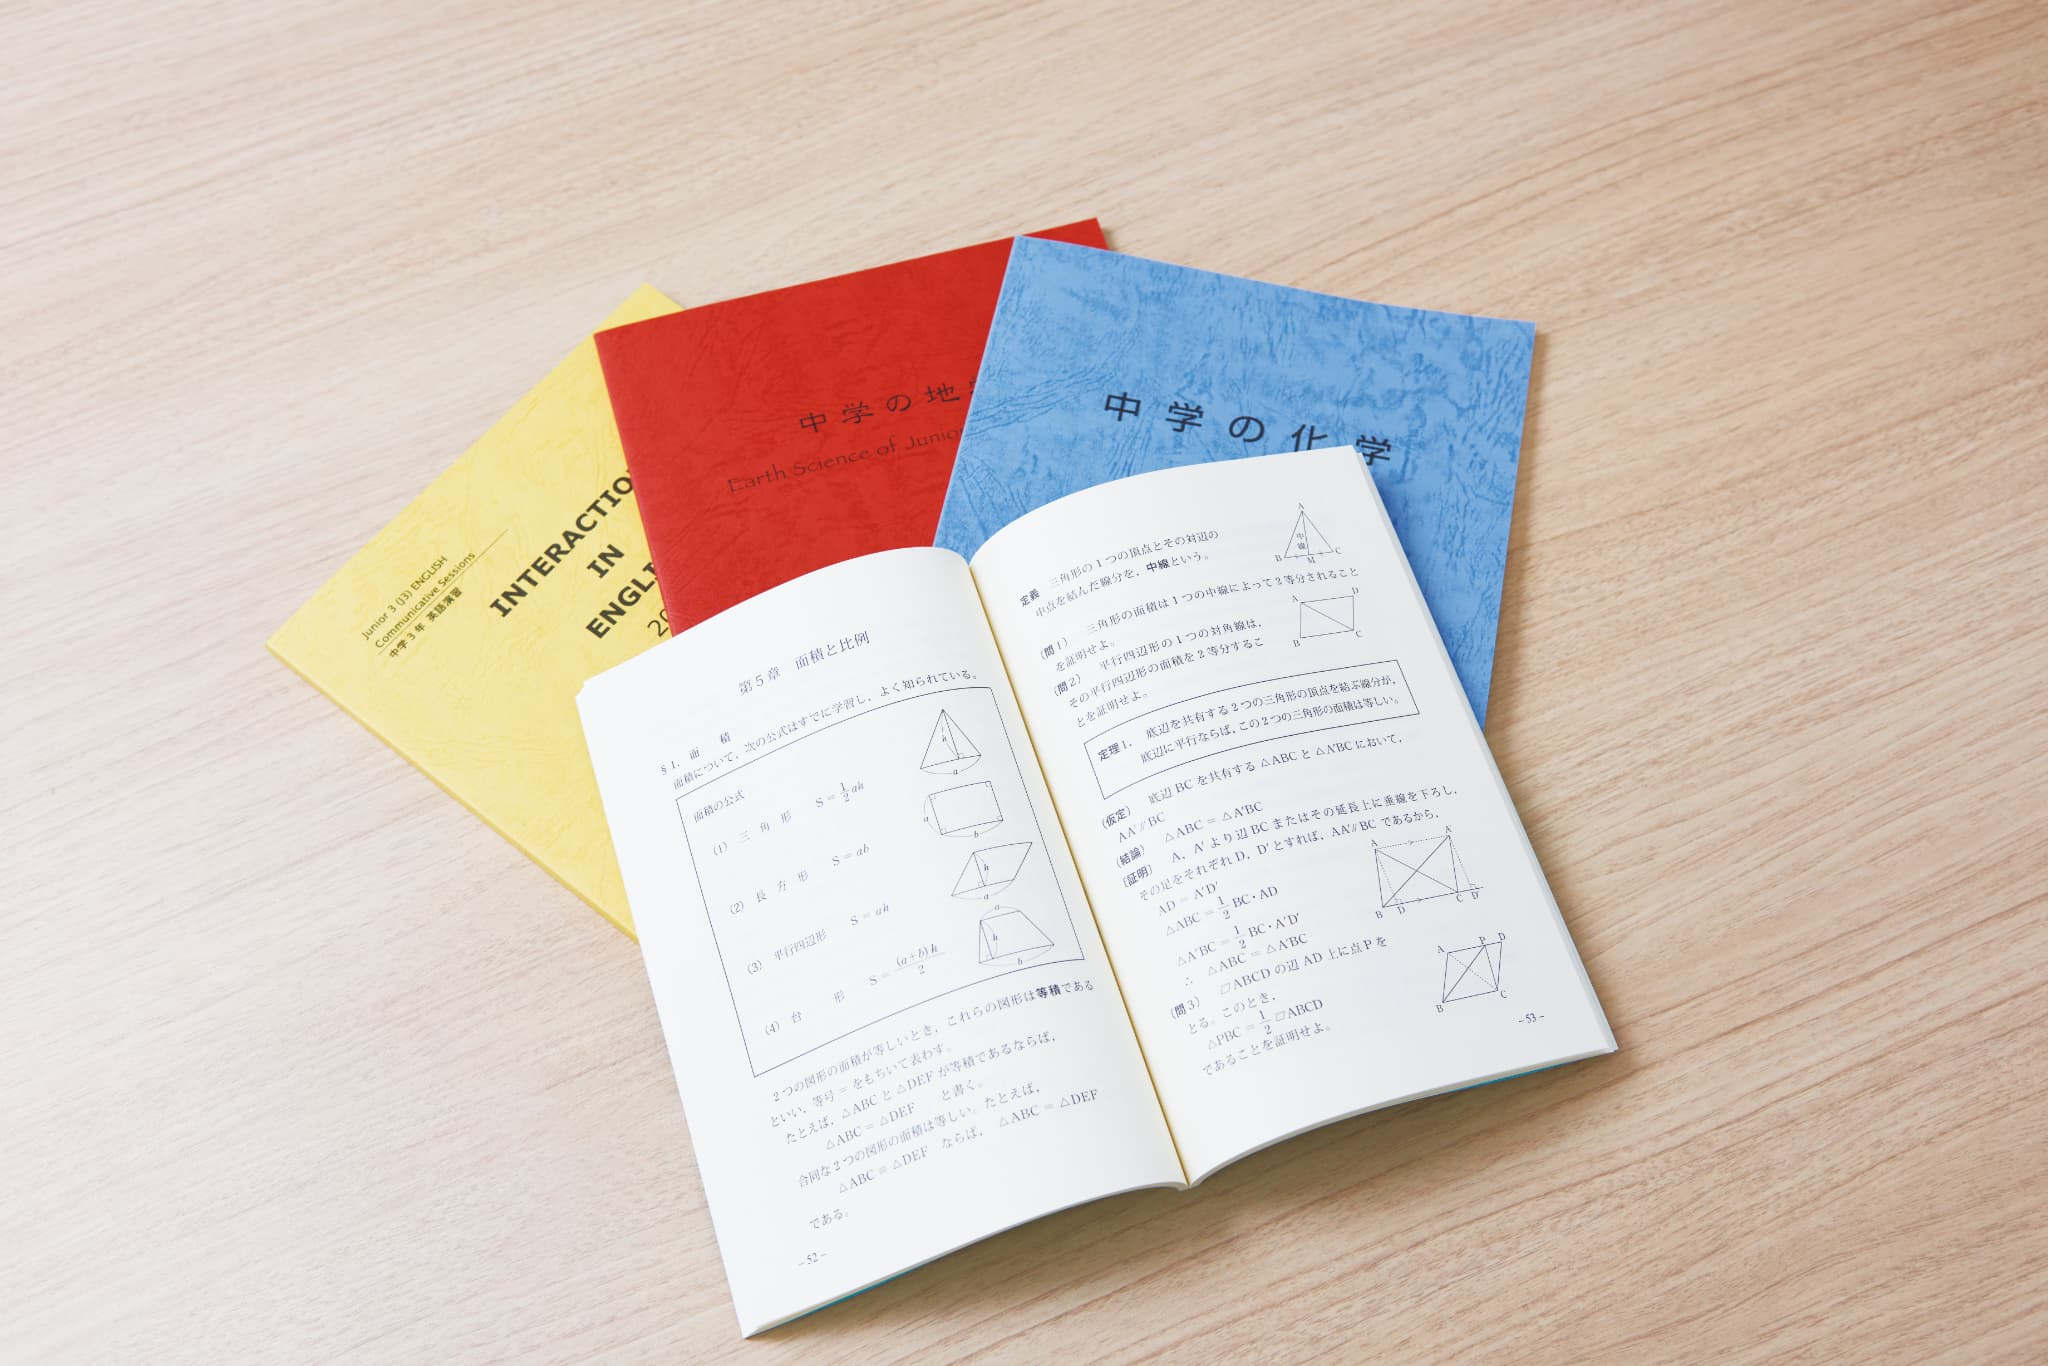 Junior 3 (J3) ENGLISH
Communicative Sessions
中学3年 英語演習
INTERACTION
IN
ENGLI
20
中学の地
Earth Science of Junior
中学の化学
第5章 面積と比例
§1. 面 積
面積について,次の公式はすでに学習し,よく知られている。
面積の公式
(1) 三角形 S = 1/2 ah
h
a
(2) 長方形 S = ab
a
b
(3) 平行四辺形 S = ah
h
a
(4) 台 形 S = (a+b)h/2
a
h
b
2つの図形の面積が等しいとき,これらの図形は等積である
といい,等号 = をもちいて表わす。
たとえば,△ABC と △DEF が等積であるならば,
△ABC = △DEF と書く。
合同な2つの図形の面積は等しい。たとえば,
△ABC ≡ △DEF ならば, △ABC = △DEF
である。
−52−
定義 三角形の1つの頂点とその対辺の
中点を結んだ線分を,中線という。
A
中線
B M C
(問1) 三角形の面積は1つの中線によって2等分されること
を証明せよ。
(問2) 平行四辺形の1つの対角線は,
その平行四辺形の面積を2等分するこ
とを証明せよ。
A D
B C
定理1. 底辺を共有する2つの三角形の頂点を結ぶ線分が,
底辺に平行ならば,この2つの三角形の面積は等しい。
(仮定) 底辺 BC を共有する △ABC と △A′BC において,
AA′∥BC
(結論) △ABC = △A′BC
〔証明〕 A,A′ より辺 BC またはその延長上に垂線を下ろし,
その足をそれぞれ D,D′ とすれば,AA′∥BC であるから,
AD = A′D′
△ABC = 1/2 BC・AD
△A′BC = 1/2 BC・A′D′
∴ △ABC = △A′BC
A A′
B D C D′
(問3) ▱ABCD の辺 AD 上に点 P を
とる。このとき,
△PBC = 1/2 ▱ABCD
であることを証明せよ。
A P D
B C
−53−